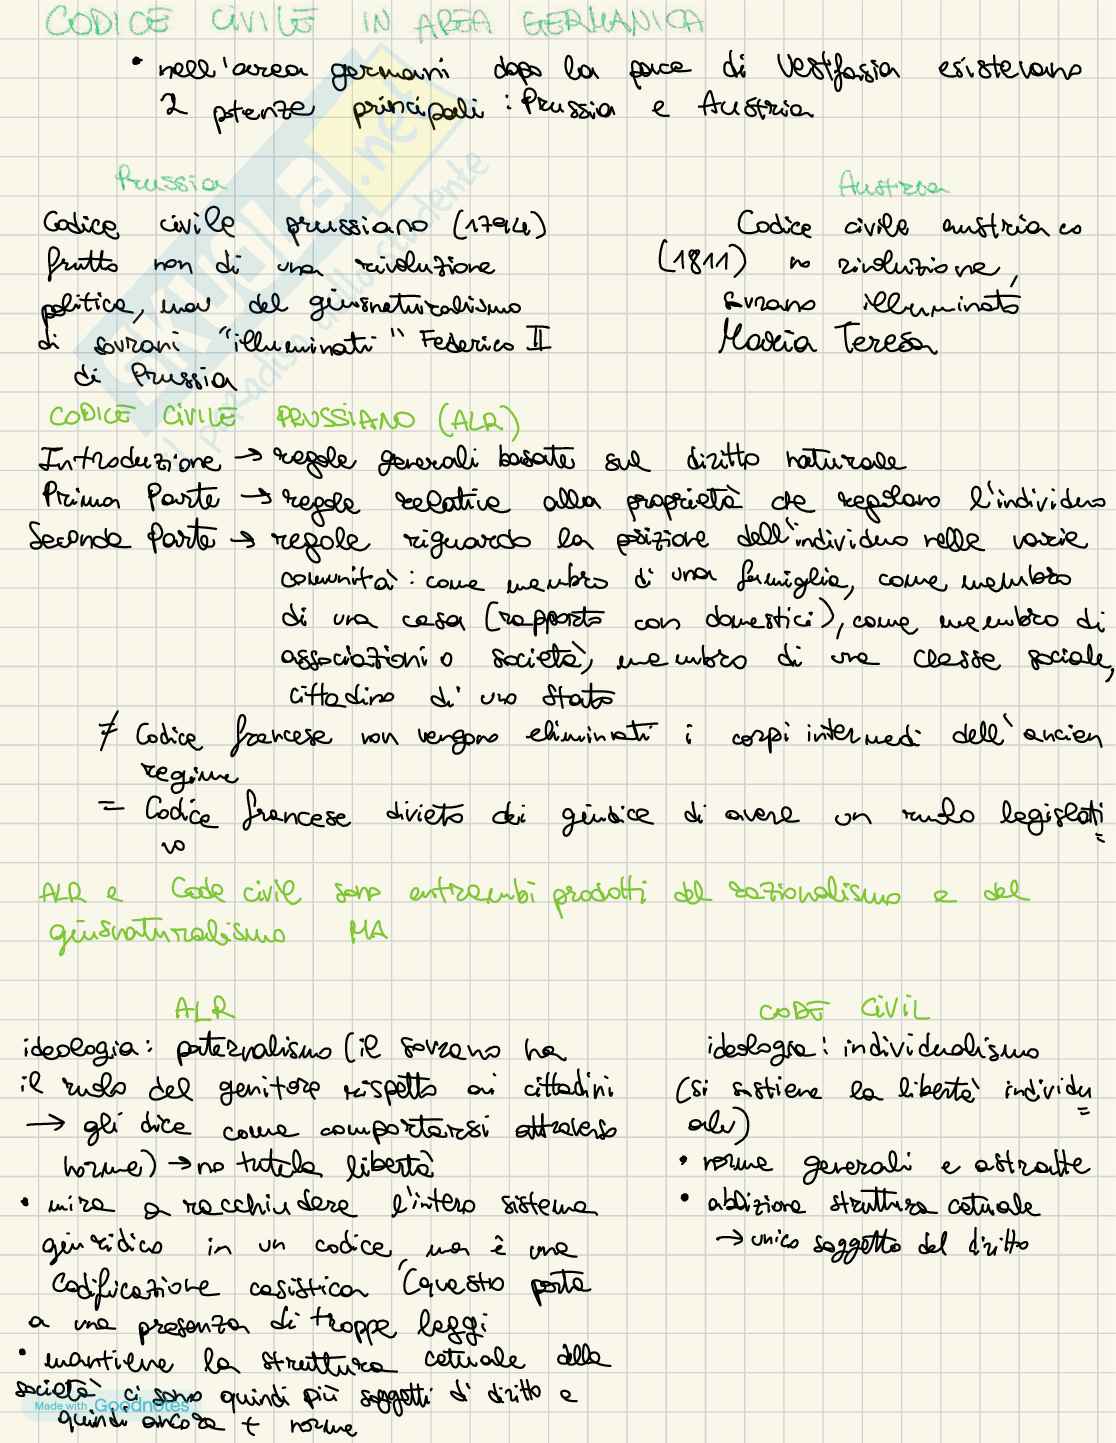 CODICE CIVILE IN AREA GERMANICA
• nell'area germani dopo la pace di Vestfasia esistevano
2 potenze principali : Prussia e Austria
Prussia
Codice civile prussiano (1794)
frutto non di una rivoluzione
politica, ma del giusnaturalismo
di sovrani "illuminati" Federico II
di Prussia
Austria
Codice civile austriaco
(1811) no rivoluzione,
sovrano illuminato
Maria Teresa
CODICE CIVILE PRUSSIANO (ALR)
Introduzione → regole generali basate sul diritto naturale
Prima Parte → regole relative alla proprietà che regolano l'individuo
Seconda Parte → regole riguardo la posizione dell'individuo nelle varie
comunità : come membro di una famiglia, come membro
di una casa (rapporto con domestici), come membro di
associazioni o società, membro di una classe sociale,
cittadino di uno Stato
≠ Codice francese non vengono eliminati i corpi intermedi dell'ancien
regime
= Codice francese divieto dei giudice di avere un ruolo legislati
vo
ALR e Code civil sono entrambi prodotti del razionalismo e del
giusnaturalismo MA
ALR
ideologia : paternalismo (il sovrano ha
il ruolo del genitore rispetto ai cittadini
→ gli dice come comportarsi attraverso
norme) → no tutela libertà
• mira a racchiudere l'intero sistema
giuridico in un codice, ma è una
codificazione casistica (questo porta
a una presenza di troppe leggi
• mantiene la struttura cetuale della
società ci sono quindi più soggetti di diritto e
quindi ancora + norme
CODE CIVIL
ideologia : individualismo
(si sostiene la libertà individu
ale)
• norme generali e astratte
• abolizione struttura cetuale
→ unico soggetto del diritto
Made with Goodnotes